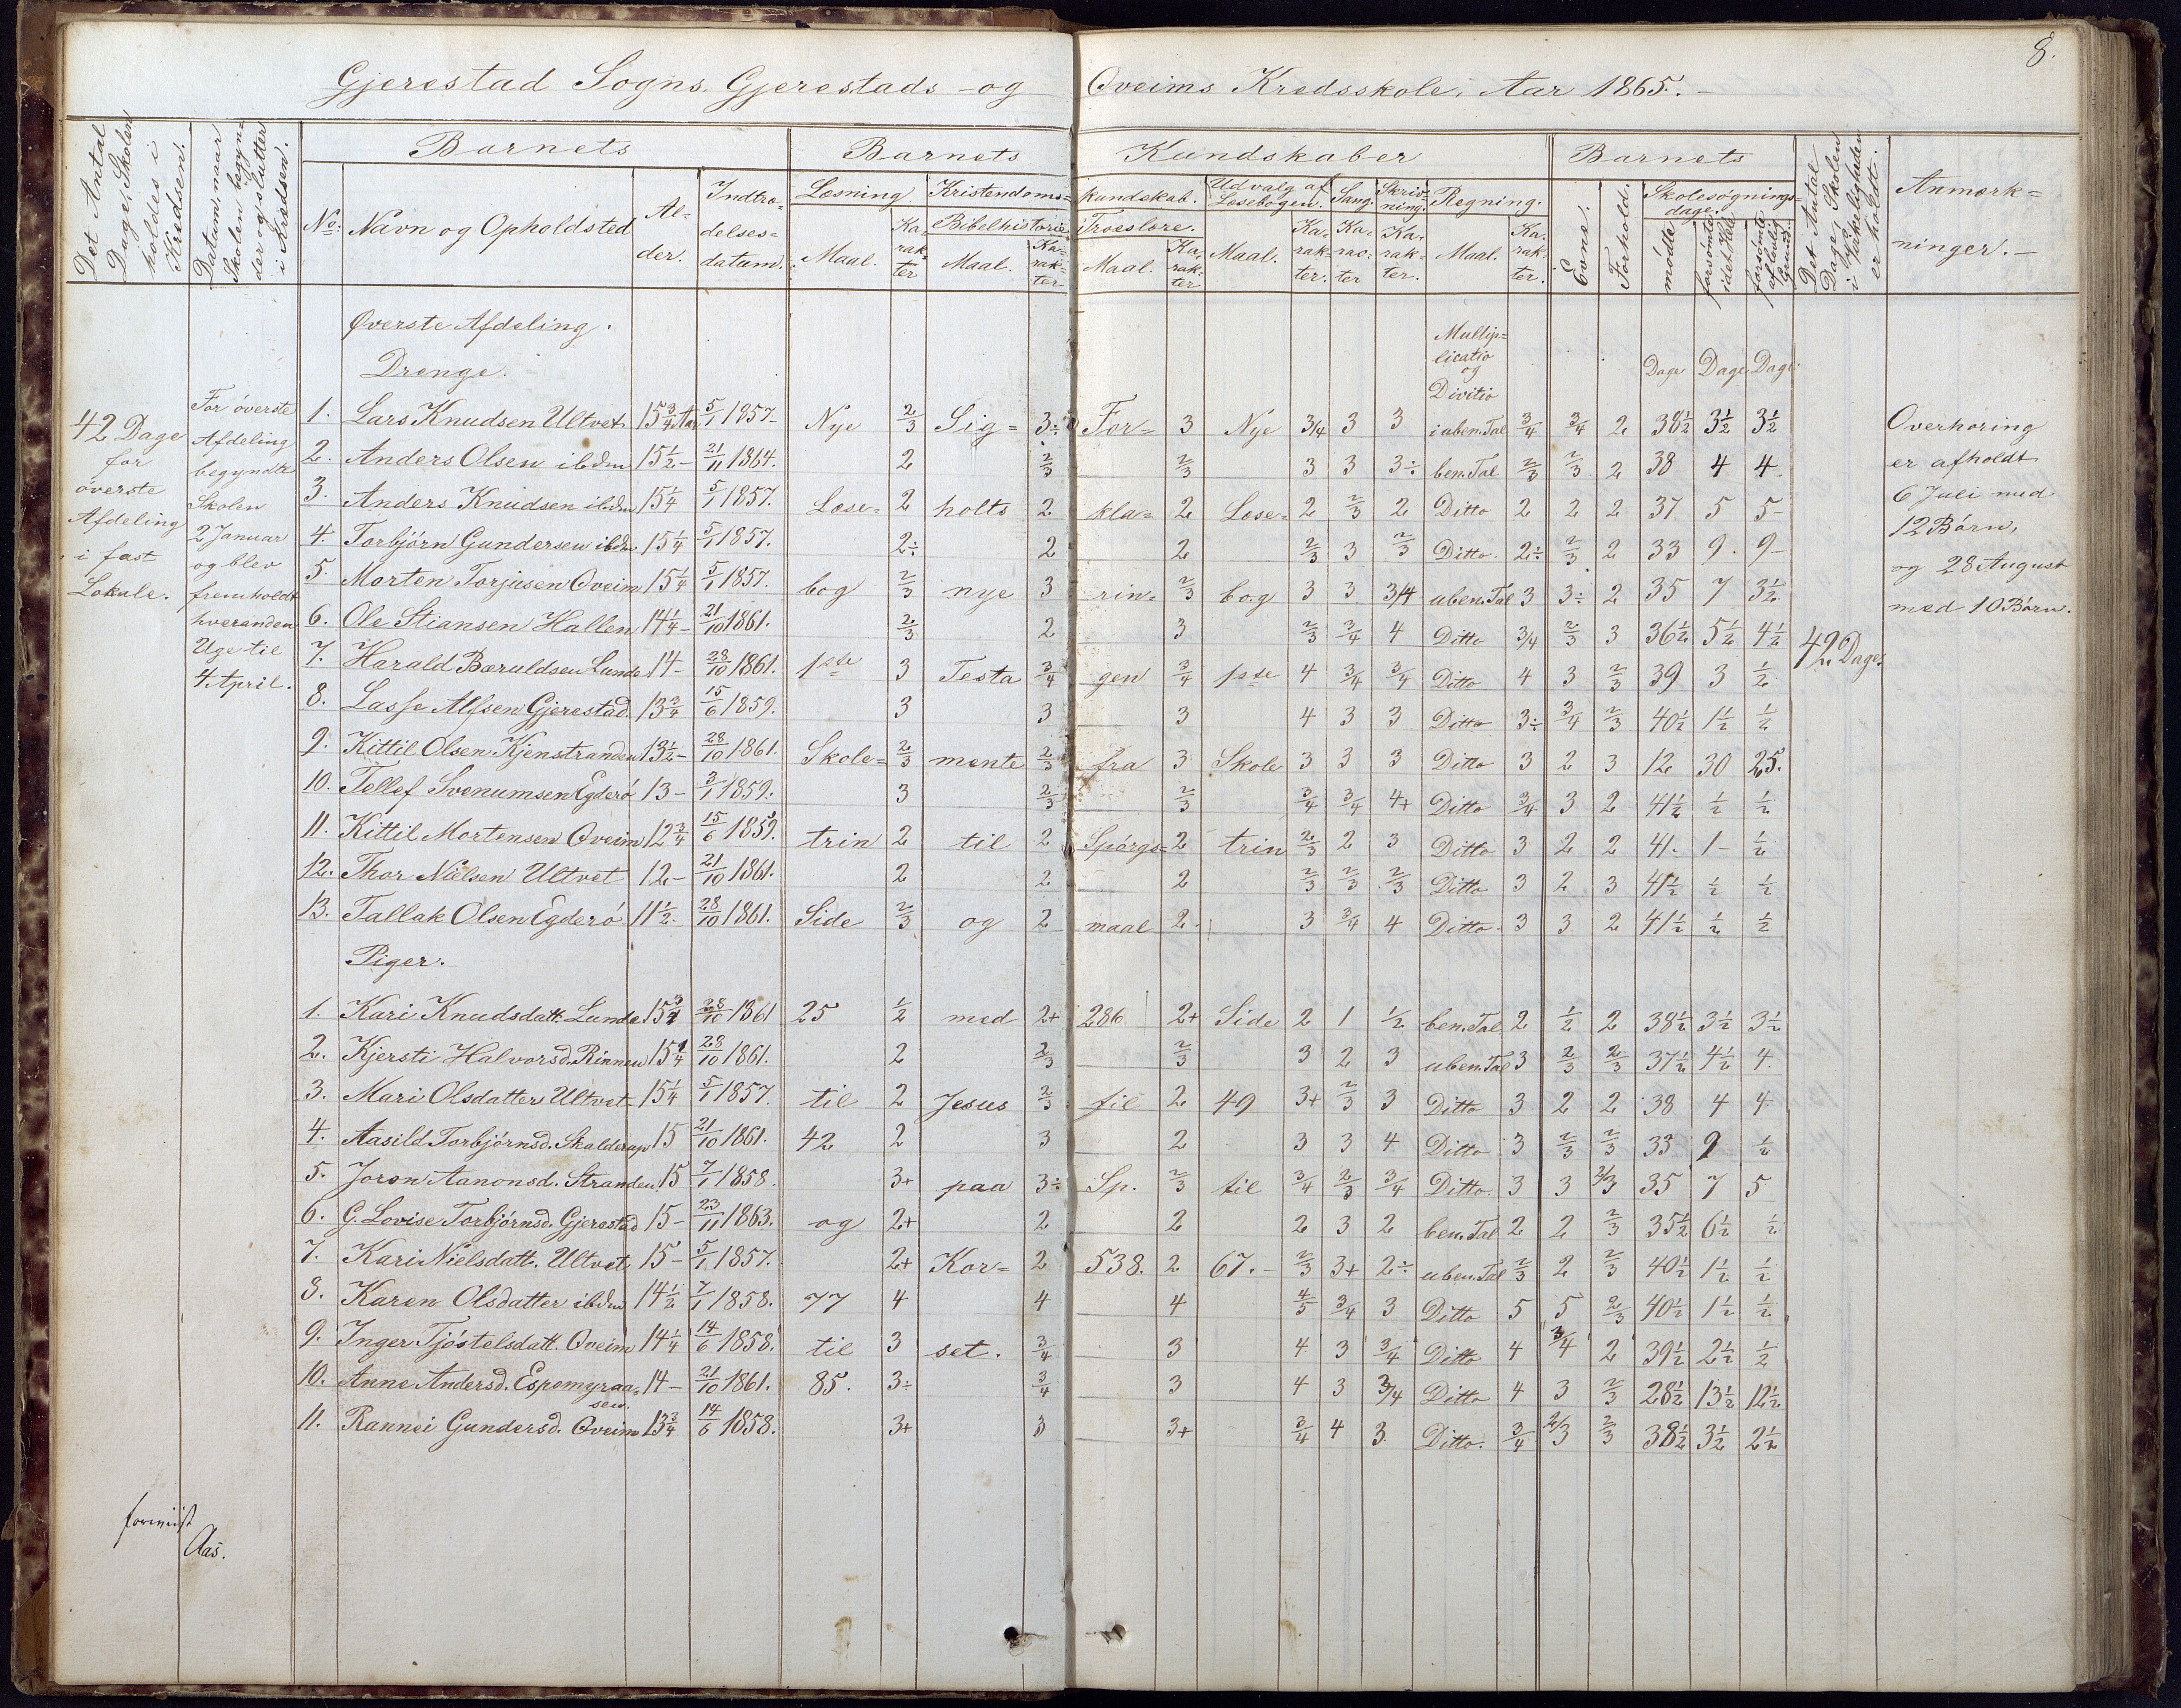 8.
Gjerestad Sogns. Gjerestads - og Oveims Kredsskole, Aar 1865. -
Det Antal Dage, Skolen holdes i Kredsen.
Datum, naar Skolen begyn= der og slutter i Kredsen.
Barnets
No: Navn og Opholdsted
Al= der.
Indtræ= delses= datum.
Barnets Kundskaber
Læsning Maal. Ka= rak= ter
Kristendoms= kundskab.
Bibelhistorie Maal. Ka= rak= ter
Troeslære. Maal. Ka= rak= ter
Udvalg af Læsebogen. Maal. Ka= rak= ter.
Sang. Ka= rac= ter
Skriv= ning. Ka= rak= ter.
Regning. Maal. Ka= rak= ter.
Barnets
Evne.
Forhold.
Skolesøgnings= dage.
mødte
forsømte i det Hele
forsømte af lovlig Grund.
Det Antal Dage, Skolen i Virkeligheden er holdt.
Anmærk= ninger. -
Øverste Afdeling.
Drenge.
Multip= licatio og Divitio
Dage Dage Dage
42 Dage
for
øverste
Afdeling
i fast
Lokale.
For øverste
Afdeling
begyndte
Skolen
2 Januar
og blev
fremholdt
hveranden
Uge til
4 April.
1. Lars Knudsen Ultvet 15 3/4 Aar 5/1 1857. Nye 2/3 Sig= 3÷ For= 3 Nye 3/4 3 3 i uben. Tal 3/4 3/4 2 38 1/2 3 1/2 3 1/2
2. Anders Olsen ibdm 15 1/2 - 21/11 1864. 2 2/3 2/3 3 3 3÷ ben. Tal 2/3 2/3 2 38 4 4
3. Anders Knudsen ibdm 15 1/4 5/1 1857. Læse= 2 holts 2 kla= 2 Læse= 2 2/3 2 Ditto 2 2 2 37 5 5-
4. Torbjørn Gundersen ibdm 15 1/4 5/1 1857. 2÷ 2 2 2/3 3 2/3 Ditto. 2÷ 2/3 2 33 9. 9-
5. Morten Torjusen Oveim 15 1/4 5/1 1857. bog 2/3 nye 3 rin= 2/3 bog 3 3 3/4 uben. Tal 3 3÷ 2 35 7 3 1/2
6. Ole Stiansen Hallen 14 1/4 - 21/10 1861. 2/3 2 3 2/3 3/4 4 Ditto 3/4 2/3 3 36 1/2 5 1/2 4 1/2
7. Harald Bæruldsen Lunde 14 - 28/10 1861. 1ste 3 Testa 3/4 gen 3/4 1ste 4 3/4 3/4 Ditto 4 3 2/3 39 3 1/2
42 Dage.
8. Lasse Alfsen Gjerestad. 13 3/4 15/6 1859. 3 3 3 4 3 3 Ditto 3÷ 3/4 2/3 40 1/2 1 1/2 1/2
9. Kittil Olsen Kjenstranden 13 1/2 - 28/10 1861. Skole= 2/3 mente 2/3 fra 3 Skole 3 3 3 Ditto 3 2 3 12 30 25.
10. Tellef Svenumsen Egderø 13 - 3/1 1859. 3 2/3 2/3 3/4 3/4 4+ Ditto 3/4 3 2 41 1/2 1/2 1/2
11. Kittil Mortensen Oveim 12 3/4 15/6 1859. trin 2 til 2 Spørgs= 2 trin 2/3 2 3 Ditto 3 2 2 41. 1- 1/2
12. Thor Nielsen Ultvet 12 - 21/10 1861. 2 2 2 2/3 2/3 2/3 Ditto 3 2 3 41 1/2 1/2 1/2
13. Tallak Olsen Egderø 11 1/2. 28/10 1861. Side 2/3 og 2 maal 2. 3 3/4 4 Ditto. 3 3 2 41 1/2 1/2 1/2
Piger.
1. Kari Knudsdatt. Lunde 15 3/4 28/10 1861 25 1/2 med 2+ 286 2+ Side 2 1 1/2 ben. Tal 2 1/2 2 38 1/2 3 1/2 3 1/2
2. Kjersti Halvorsd. Rinnen 15 1/4 28/10 1861. 2 2/3 2/3 3 2 3 uben. Tal 3 2/3 2/3 37 1/2 4 1/2 4.
3. Mari Olsdatter Ultvet 15 1/4 5/1 1857. til 2 Jesus 2/3 til 2 49 3+ 2/3 3 Ditto 3 2 2 38 4 4
4. Aasild Torbjørnsd. Skalderap 15 21/10 1861. 42 2 3 2 3 3 4 Ditto 3 2/3 2/3 33 9 1/2
5. Joron Aanonsd. Stranden 15 7/1 1858. 3+ paa 3÷ Sp. 2/3 til 3/4 2/3 3/4 Ditto. 3 3 2/3 35 7 5
6. G. Lovise Torbjørnsd. Gjerestad 15 - 23/11 1863. og 2+ 2 2 2 3 2 ben. Tal 2 2 2/3 35 1/2 6 1/2 1/2
7. Kari Nielsdatt. Ultvet 15 - 5/1 1857. 2+ Kor= 2 538. 2 67. - 2/3 3+ 2÷ uben. Tal 2/3 2 2/3 40 1/2 1 1/2 1/2
8. Karen Olsdatter ibdm 14 1/2 7/1 1858. 77 4 4 4 4/5 3/4 3 Ditto 5 5 2/3 40 1/2 1 1/2 1/2
9. Inger Tjøstelsdatt. Oveim 14 1/4 14/6 1858. til 3 set. 3/4 3 4 3 3/4 Ditto 4 3/4 2 39 1/2 2 1/2 1/2
10. Anne Andersd. Espemyraa= sen. 14 - 21/10 1861. 85. 3÷ 3/4 3 4 3 3/4 Ditto 4 3 2/3 28 1/2 13 1/2 12 1/2
11. Rannei Gundersd. Oveim 13 3/4 14/6 1858. 3+ 3 3+ 3/4 4 3 Ditto. 3/4 2/3 2/3 38 1/2 3 1/2 2 1/2
Overhøring
er afholdt
6 Juli med
12 Børn,
og 28 August
med 10 Børn.
Aas.